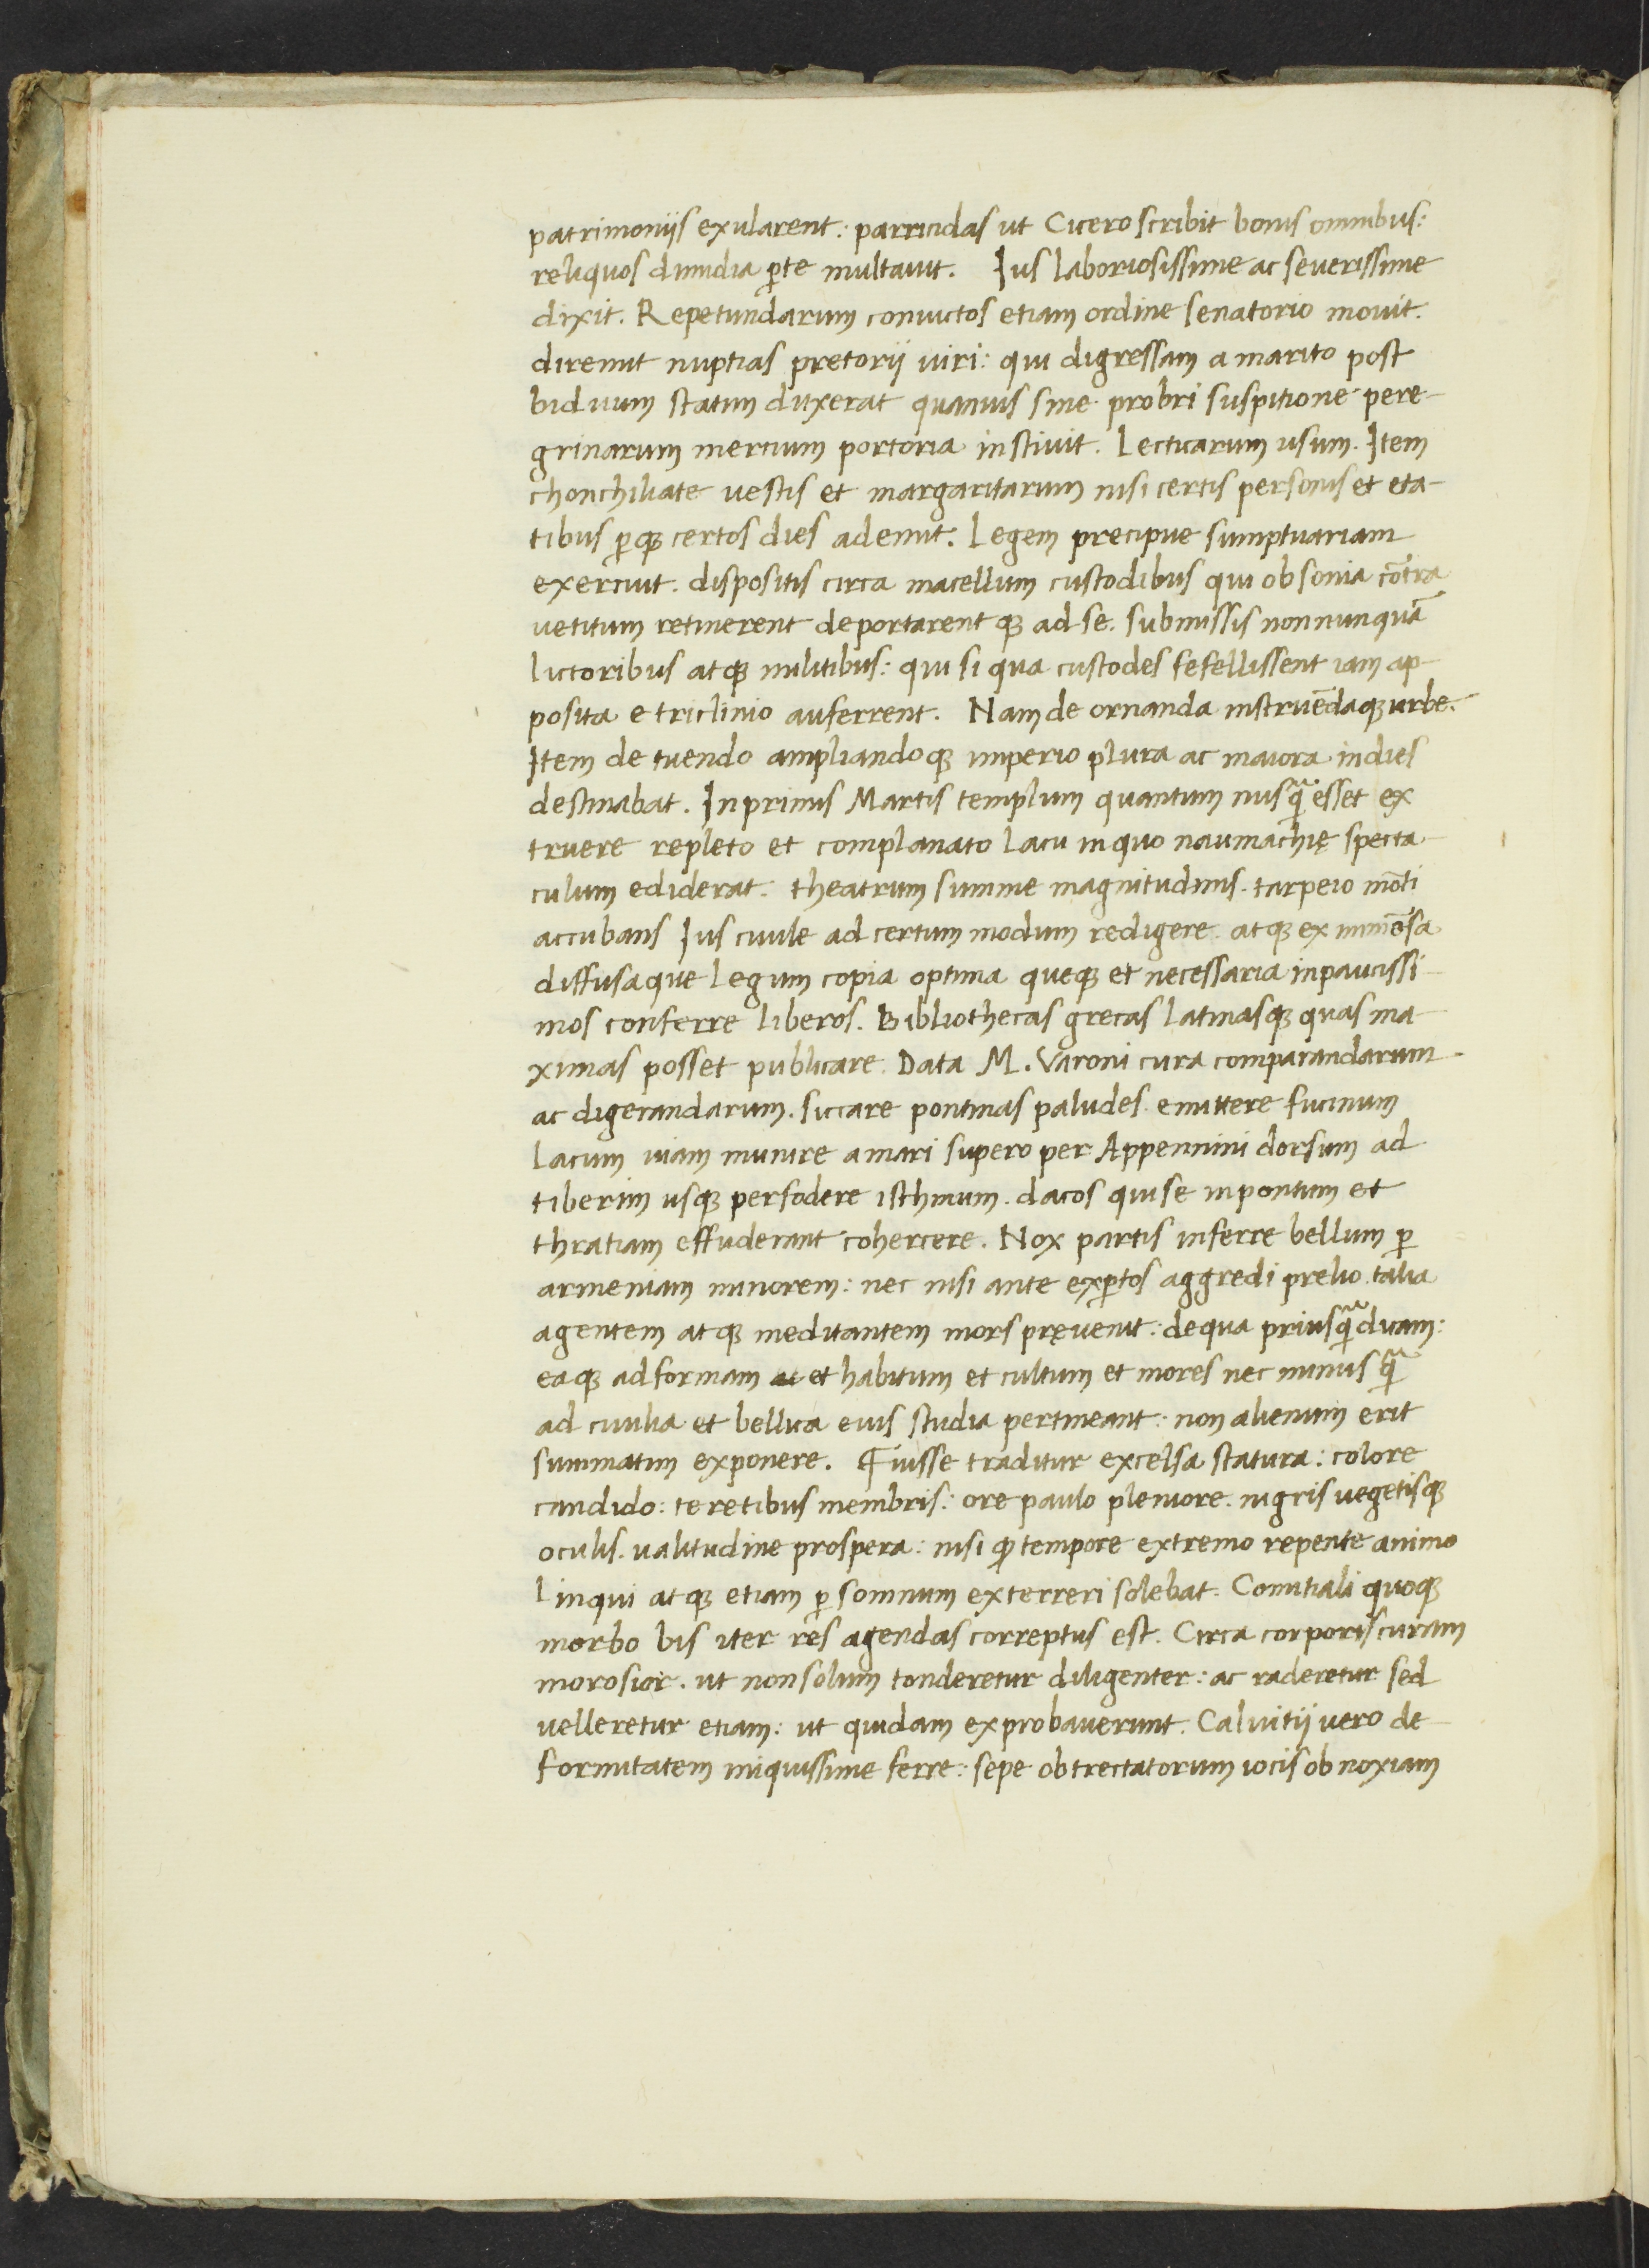 patrimoniis exularent: parricidas ut Cicero scribit bonis omnibus:
reliquos dimidia ꝑte multauit. Ius laboriosissime ac seuerissime
dixit. Repetundarum conuictos etiam ordine senatorio mouit.
diremit nuptias pretorij uiri: qui digressam a marito post
biduum statim duxerat quamuis sine probri suspitione pere-
grinarum mercium portoria instiuit. Lecticarum usum. Item
chonchiliate uestis et margaritarum nisi certis personis et eta-
tibus ꝑqꝫ certos dies ademit. Legem precipue sumptuariam
exercuit. dispositis circa macellum custodibus qui obsonia cōtra
uetitum retinerent deportarentqꝫ ad se. submissis nonnunquā
lictoribus atqꝫ militibus: qui si qua custodes fefellissent iam ap-
posita e triclinio auferrent. Nam de ornanda instruēdaqꝫ urbe.
Item de tuendo ampliandoqꝫ imperio plura ac maiora indies
destinabat. Inprimis Martis templum quantum nusq̃ esset ex
truere repleto et complanato lacu in quo naumachię specta-
culum ediderat: theatrum summe magnitudinis. tarpeio mōti
accubans Ius ciuile ad certum modum redigere. atqꝫ ex immēsa
diffusaque legum copia optima queqꝫ et necessaria in paucissi-
mos conferre liberos. Bibliothecas grecas latinasqꝫ quas ma-
ximas posset publicare. Data M. Varoni cura comparandarum
ac digerandarum. siccare pontinas paludes. emittere fucinum
lacum uiam munire a mari supero per Appennini dorsum ad
tiberim usqꝫ perfodere isthmum. dacos qui se in pontum et
thratiam effuderant cohercere. Nox partis inferre bellum ꝑ
armeniam minorem: nec nisi ante exꝑtos aggredi prelio. talia
agentem atqꝫ meditantem mors pręuenit: de qua priusq̃ dicam:
eaqꝫ ad formam et habitum et cultum et mores nec minus q̃
ad ciuilia et bellica eius studia pertineant: non alienum erit
summatim exponere. Fuisse traditur excelsa statura: colore
candido: teretibus membris: ore paulo pleniore. nigris uegetisqꝫ
oculis. ualitudine prospera: nisi ꝙ tempore extremo repente animo
linqui atqꝫ etiam ꝑ somnum exterreri solebat. Comitiali quoqꝫ
morbo bis iter res agendas correptus est. Circa corporis curam
morosior. ut non solum tonderetur diligenter: ac raderetur sed
uelleretur etiam: ut quidam exprobauerunt. Caluitij uero de-
formitatem iniquissime ferre: sepe obtrectatorum iocis obnoxiam